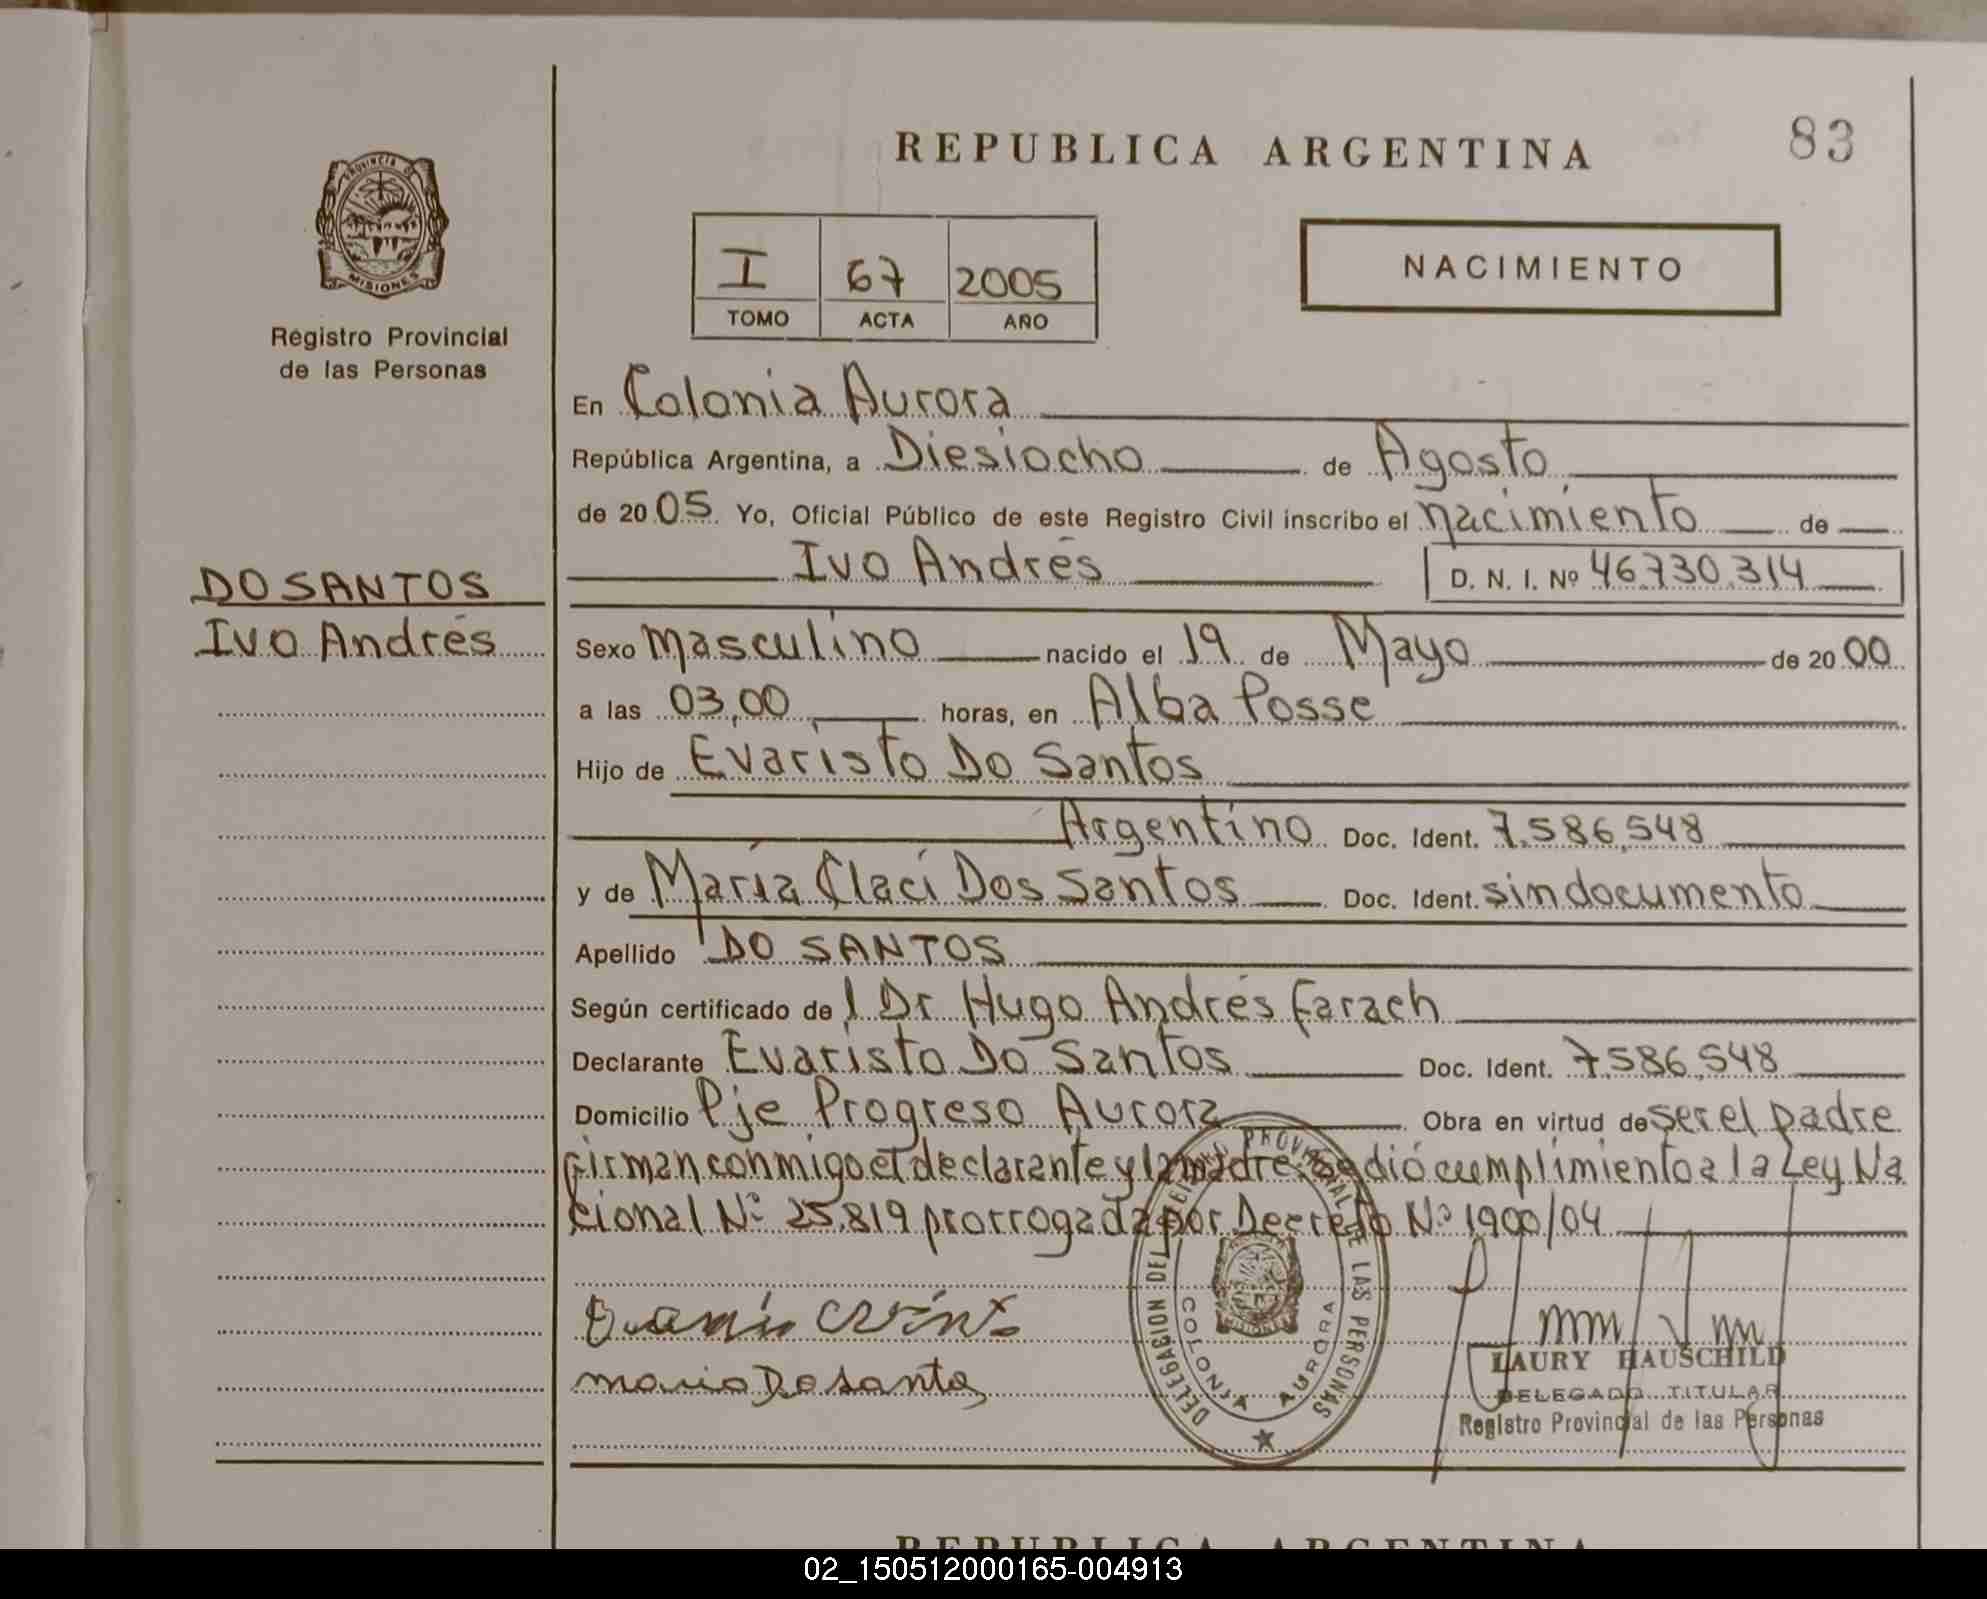 REPUBLICA ARGENTINA
83
PROVINCIA DE
MISIONES
Registro Provincial
de las Personas
I 67 2005
TOMO ACTA AÑO
NACIMIENTO
En Colonia Aurora
República Argentina, a Diesiocho de Agosto
de 2005. Yo, Oficial Público de este Registro Civil inscribo el nacimiento de
Ivo Andrés D. N. I. Nº 46.730.314
DO SANTOS
Ivo Andrés
Sexo masculino nacido el 19 de Mayo de 2000
a las 03,00 horas, en Alba Posse
Hijo de Evaristo Do Santos
Argentino Doc. Ident. 7.586.548
y de María Claci Dos Santos Doc. Ident. sin documento
Apellido DO SANTOS
Según certificado del Dr Hugo Andrés Farach
Declarante Evaristo Do Santos Doc. Ident. 7.586.548
Domicilio Pje Progreso Aurora Obra en virtud de ser el padre
firman conmigo el declarante y la madre. se dió cumplimiento a la Ley Na
cional Nº 25.819 prorrogada por Decreto Nº 1900/04
DELEGACION DEL REGISTRO PROVINCIAL DE LAS PERSONAS
COLONIA AURORA
MISIONES
maria Do santos
LAURY HAUSCHILD
DELEGADO TITULAR
Registro Provincial de las Personas
REPUBLICA ARGENTINA
02_150512000165-004913